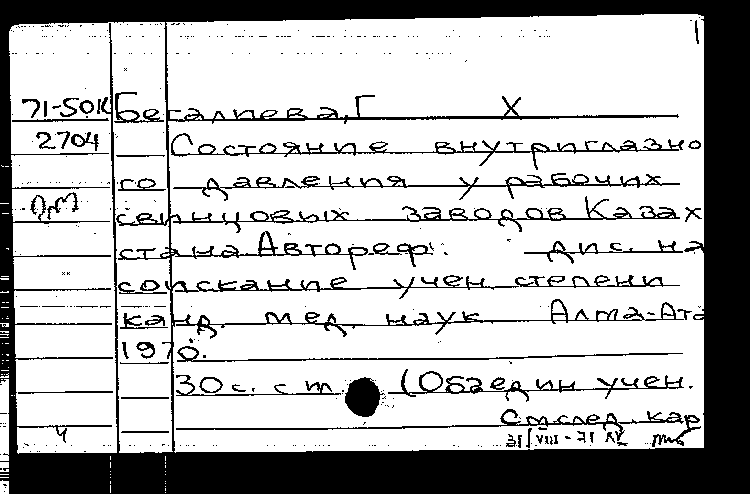 71-50К Бегалиева, Г X
2704 Состояние внутриглазно
го давления у рабочих
свинцовых заводов Казах
стана Автореф. дис. на
соискание учен степени
канд. мед. наук Алма-Ата
1970.
30 с. с т. (Объедин учен.
См. след. кар
4 31/VIII-71